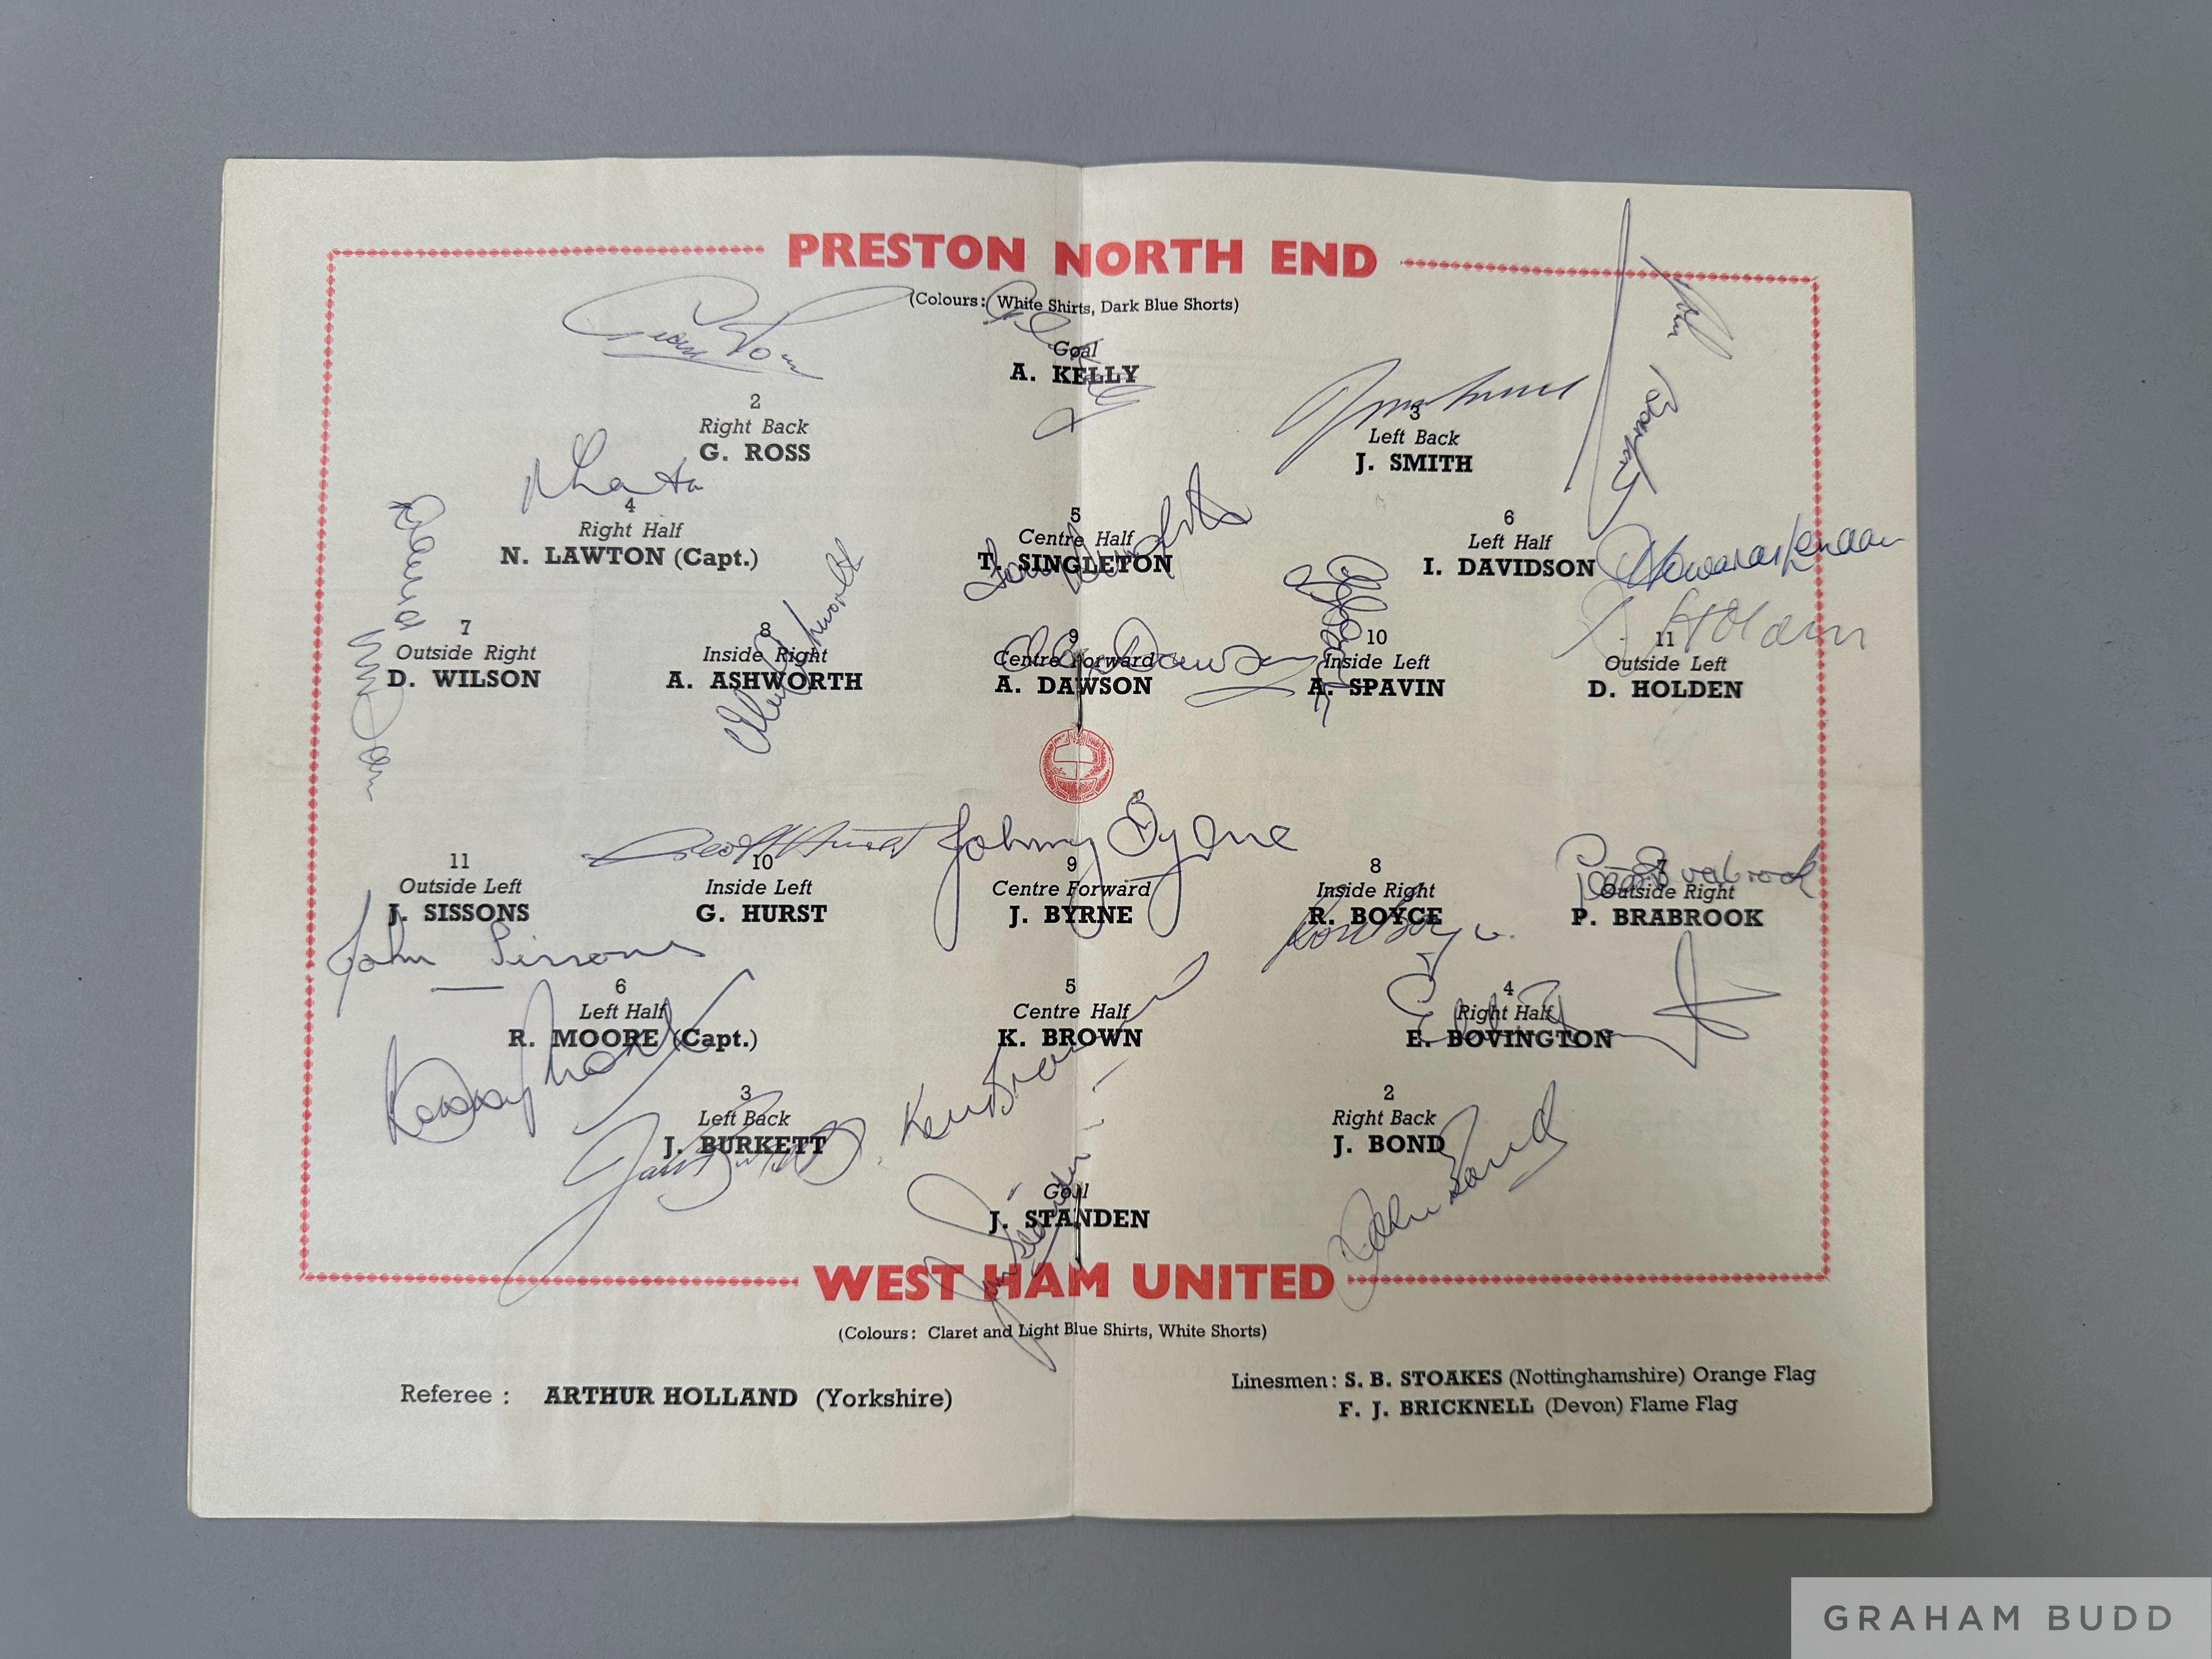 PRESTON NORTH END
(Colours: White Shirts, Dark Blue Shorts)
Goal
A. KELLY
2
Right Back
G. ROSS
3
Left Back
J. SMITH
4
Right Half
N. LAWTON (Capt.)
5
Centre Half
T. SINGLETON
6
Left Half
I. DAVIDSON
Howard Kendall
7
Outside Right
D. WILSON
8
Inside Right
A. ASHWORTH
Alex Dawson
9
Centre Forward
A. DAWSON
10
Inside Left
A. SPAVIN
D. Holden
11
Outside Left
D. HOLDEN
David Wilson
Alec Ashworth
Geoff Hurst
Johnny Byrne
Peter Brabrook
11
Outside Left
J. SISSONS
10
Inside Left
G. HURST
9
Centre Forward
J. BYRNE
8
Inside Right
R. BOYCE
7
Outside Right
P. BRABROOK
John Sissons
Ron Boyce
6
Left Half
R. MOORE (Capt.)
5
Centre Half
K. BROWN
4
Right Half
E. BOVINGTON
Bobby Moore
Ken Brown
3
Left Back
J. BURKETT
2
Right Back
J. BOND
Jack Burkett
John Bond
Goal
J. STANDEN
Jim Standen
WEST HAM UNITED
(Colours: Claret and Light Blue Shirts, White Shorts)
Referee: ARTHUR HOLLAND (Yorkshire)
Linesmen: S. B. STOAKES (Nottinghamshire) Orange Flag
F. J. BRICKNELL (Devon) Flame Flag
GRAHAM BUDD